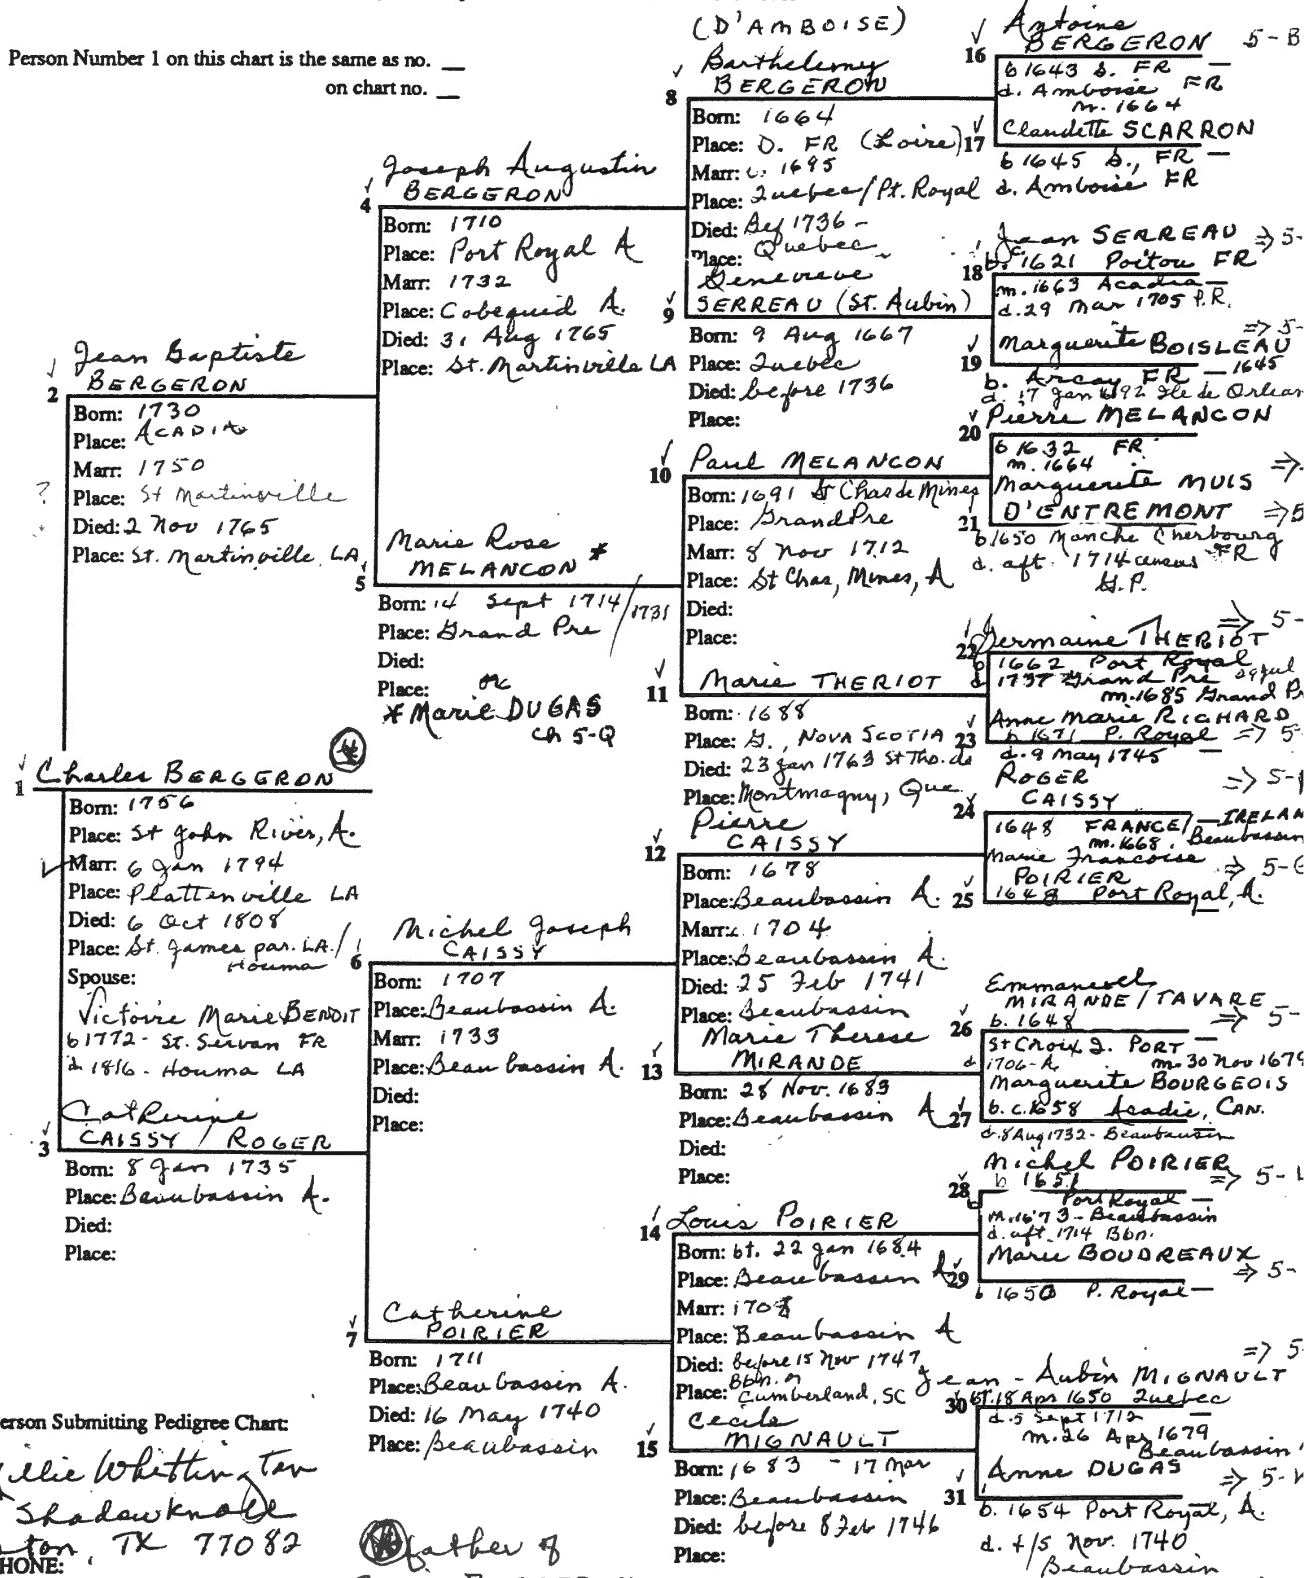 Person Number 1 on this chart is the same as no. __
on chart no. __
1
Charles BERGERON
Born: 1756
Place: St John River, A.
Marr: 6 Jan 1794
Place: Plattenville LA
Died: 6 Oct 1808
Place: St. James par. LA. /
Houma
Spouse:
Victoire Marie BENOIT
b 1772 - St. Servan FR
d. 1816 - Houma LA
2
Jean Baptiste
BERGERON
Born: 1730
Place: ACADIA
Marr: 1750
? Place: St Martinville
Died: 2 Nov 1765
Place: St. Martinville LA
3
Catherine
CAISSY / ROGER
Born: 8 Jan 1735
Place: Beaubassin A.
Died:
Place:
4
Joseph Augustin
BERGERON
Born: 1710
Place: Port Royal A
Marr: 1732
Place: Cobequid A.
Died: 31 Aug 1765
Place: St. Martinville LA
5
Marie Rose
MELANCON *
Born: 14 Sept 1714/1731
Place: Grand Pre
Died:
Place:
or
* Marie DUGAS
Ch 5-Q
6
Michel Joseph
CAISSY
Born: 1707
Place: Beaubassin A.
Marr: 1733
Place: Beaubassin A.
Died:
Place:
7
Catherine
POIRIER
Born: 1711
Place: Beaubassin A.
Died: 16 May 1740
Place: Beaubassin
8
(D'AMBOISE)
Barthelemy
BERGERON
Born: 1664
Place: D. FR (Loire)
Marr: c. 1695
Place: Quebec/Pt. Royal
Died: Bef 1736 -
Place: Quebec
9
Genevieve
SERREAU (St. Aubin)
Born: 9 Aug 1667
Place: Quebec
Died: before 1736
Place:
10
Paul MELANCON
Born: 1691 St Chas de Mines
Place: Grand Pre
Marr: 8 Nov 1712
Place: St Chas, Mines, A
Died:
Place:
11
Marie THERIOT
Born: 1688
Place: G., NOVA SCOTIA
Died: 23 Jan 1763 St Tho. de
Place: Montmagny, Que
12
Pierre
CAISSY
Born: 1678
Place: Beaubassin A.
Marr: c. 1704
Place: Beaubassin A.
Died: 25 Feb 1741
Place: Beaubassin
13
Marie Therese
MIRANDE
Born: 28 Nov. 1683
Place: Beaubassin A
Died:
Place:
14
Louis POIRIER
Born: bt. 22 Jan 1684
Place: Beaubassin A
Marr:
Place: Beaubassin A
Died: before 15 Nov 1747
Place: Bbn. or
Cumberland, SC
15
Cecile
MIGNAULT
Born: 1683 - 17 Mar
Place: Beaubassin
Died: before 8 Feb 1746
Place:
16
Antoine
BERGERON 5-B
b 1643 S. FR
d. Amboise FR
m. 1664
17
Claudette SCARRON
b 1645 S., FR
d. Amboise FR
18
Jean SERREAU => 5-
b. 1621 Poitou FR
m. 1663 Acadia
d. 29 Mar 1705 P.R.
19
Marguerite BOISLEAU => 5-
b. Arcay FR - 1645
d. 17 Jan 1692 Ile de Orlean
20
Pierre MELANCON
b 1632 FR =>
m. 1664
21
Marguerite MUIS
D'ENTREMONT => 5
b 1650 Manche Cherbourg FR
d. aft. 1714 census
G.P.
22
Germaine THERIOT => 5-
b 1662 Port Royal
d 1737 Grand Pre 29 Jul
m. 1685 Grand Pr
23
Anne Marie RICHARD
b 1671 P. Royal => 5-
d. 9 May 1745
24
ROGER
CAISSY => 5-
1648 FRANCE/ IRELAN
m. 1668, Beaubassin
25
Marie Francoise
POIRIER => 5-
1648 Port Royal, A.
26
Emmanuel
MIRANDE / TAVARE
b. 1648 => 5-
St Croix I. PORT
d 1706 - A. m. 30 Nov 1679
27
Marguerite BOURGEOIS
b. c. 1658 Acadie, CAN.
d. 8 Aug 1732 - Beaubassin
28
Michel POIRIER
b 1651 => 5-
Port Royal
m. 1673 - Beaubassin
d. aft. 1714 Bbn.
29
Marie BOUDREAUX
=> 5-
b 1650 P. Royal
30
=> 5-
Jean - Aubin MIGNAULT
bt. 18 Apr 1650 Quebec
d. 5 Sept 1712
m. 26 Apr 1679
Beaubassin
31
Anne DUGAS => 5-
b. 1654 Port Royal, A.
d. 4/5 Nov. 1740
Beaubassin
erson Submitting Pedigree Chart:
illie Whittington
Shadowknoll
ton, TX 77082
HONE:
father of